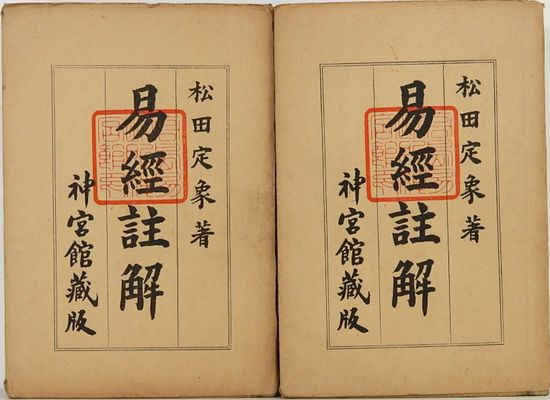 松田定象著
易經註解
神宮館藏版
松田定象著
易經註解
神宮館藏版